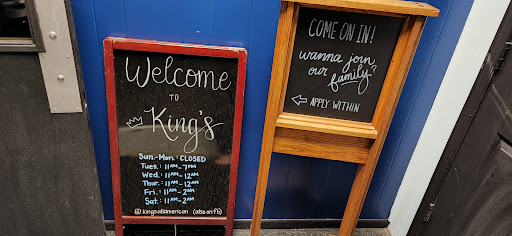 Welcome
TO
King's
Sun.-Mon.: CLOSED
Tues.: 11AM-7PM
Wed.: 11AM-12AM
Thur.: 11AM-12AM
Fri.: 11AM-2AM
Sat.: 11AM-2AM
@kingsallamerican (also on fb)
COME ON IN!
wanna join
our family?
APPLY WITHIN